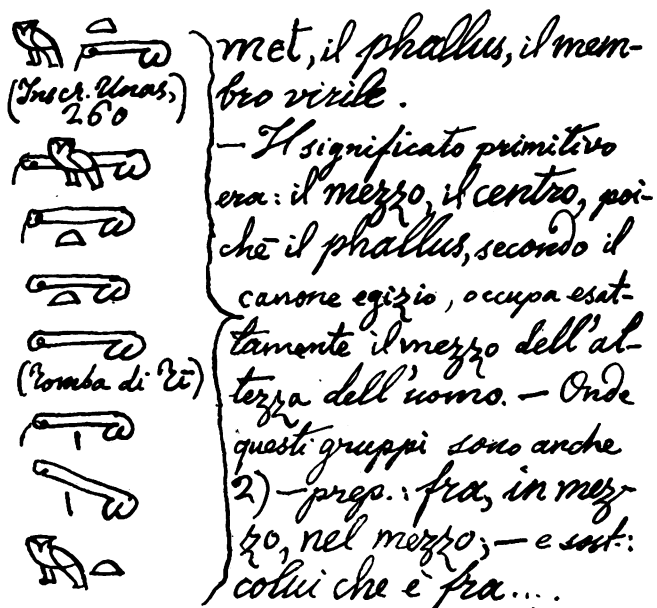 (Inscr. Unas, 260
(Tomba di Ti)
met, il phallus, il mem-
bro virile.
— Il significato primitivo
era: il mezzo, il centro, poi-
chè il phallus, secondo il
canone egizio, occupa esat-
tamente il mezzo dell'al-
tezza dell'uomo. — Onde
questi gruppi sono anche
2) — prep.: fra, in mez-
zo, nel mezzo; — e sost:
colui che è fra....